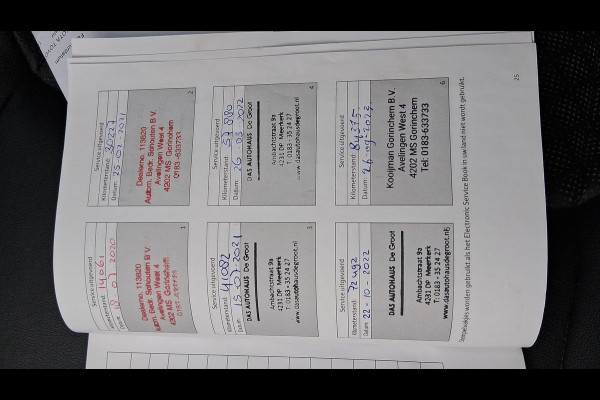 Service uitgevoerd
Kilometerstand: 14061
Datum:
1
Dealerno. 113820
Autom. Bedr. Schouten B.V.
Avelingen West 4
4202 MS Gorinchem
Service uitgevoerd
Kilometerstand:
Datum: 25-02-2021
2
Dealerno. 113820
Autom. Bedr. Schouten B.V.
Avelingen West 4
4202 MS Gorinchem
0183-633733
Service uitgevoerd
Kilometerstand:
Datum:
3
DAS AUTOHAUS De Groot
Ambachtstraat 9a
4231 DP Meerkerk
T: 0183 - 35 24 27
www.dasautohausdegroot.nl
Service uitgevoerd
Kilometerstand:
Datum:
4
DAS AUTOHAUS De Groot
Ambachtstraat 9a
4231 DP Meerkerk
T: 0183 - 35 24 27
www.dasautohausdegroot.nl
Service uitgevoerd
Kilometerstand:
Datum: 22-10-2022
5
DAS AUTOHAUS De Groot
Ambachtstraat 9a
4231 DP Meerkerk
T: 0183 - 35 24 27
www.dasautohausdegroot.nl
Service uitgevoerd
Kilometerstand:
Datum:
6
Kooijman Gorinchem B.V.
Avelingen West 4
4202 MS Gorinchem
Tel: 0183-633733
Stempelvakjes worden gebruikt als het Electronic Service Book in uw land niet wordt gebruikt.
25